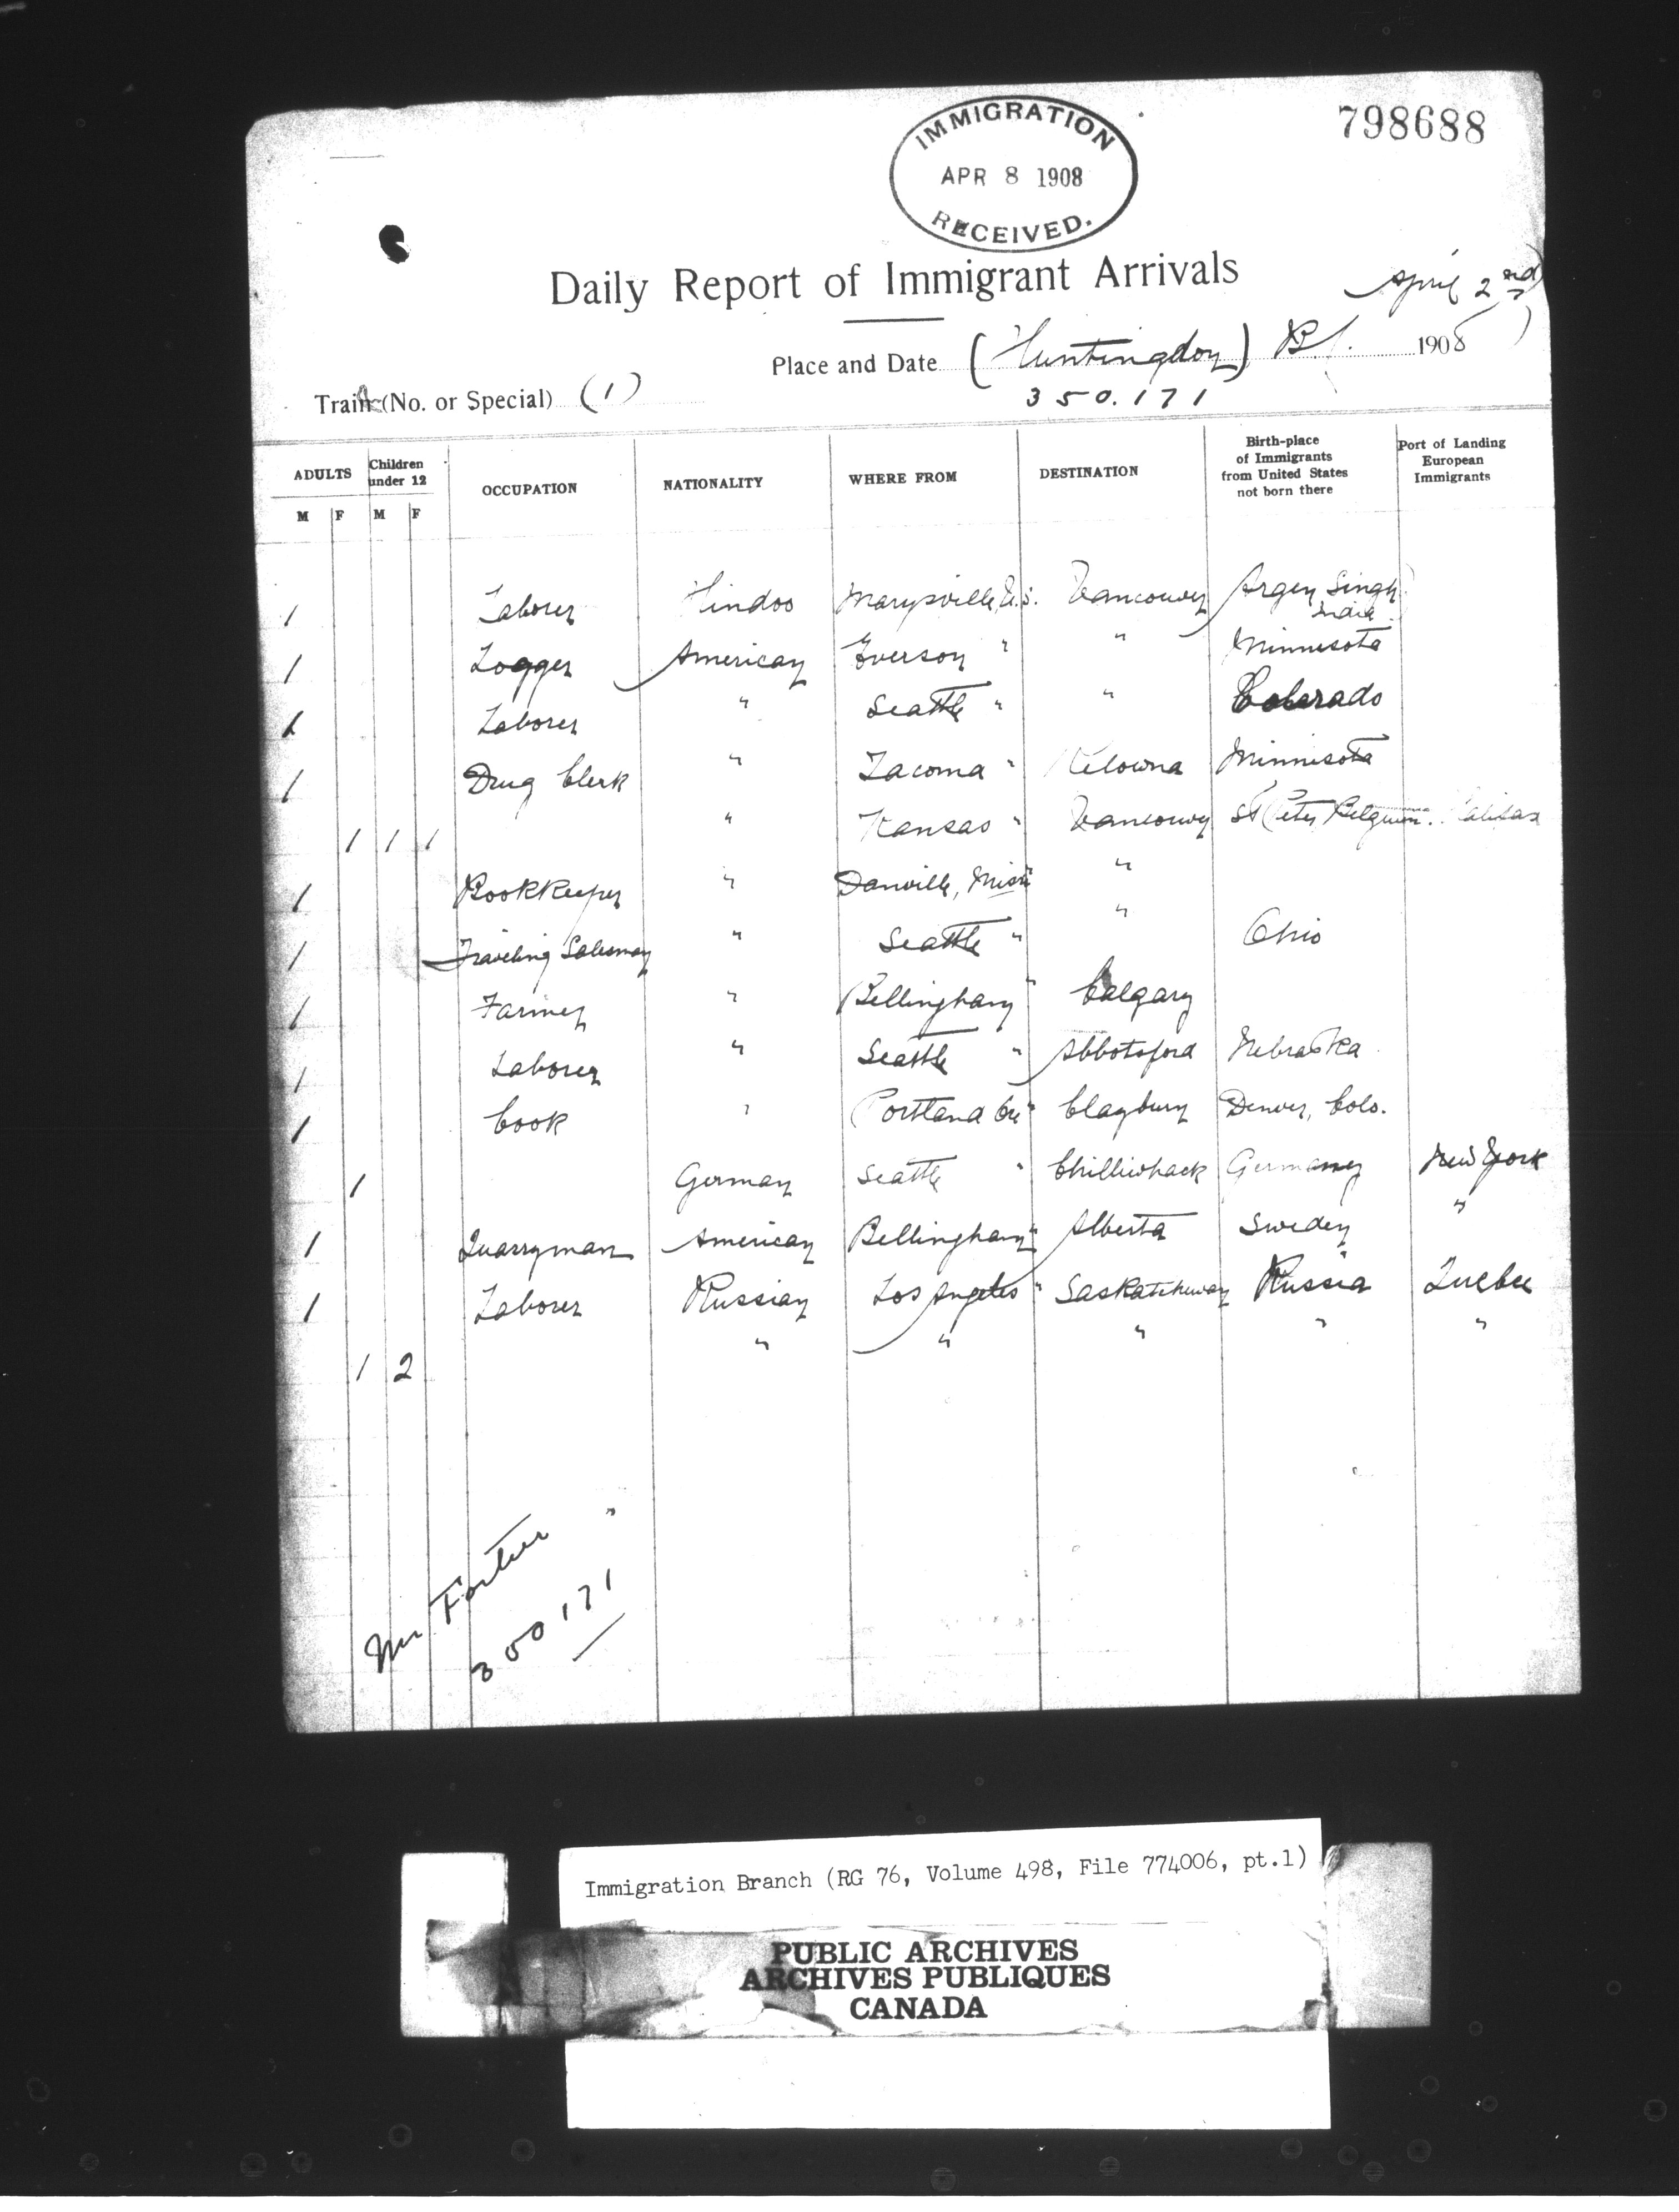 798688
IMMIGRATION
APR 8 1908
RECEIVED.
Daily Report of Immigrant Arrivals
April 2nd
Place and Date (Huntingdon) B.C. 1908
Train (No. or Special) (1)
350.171
ADULTS Children under 12 OCCUPATION NATIONALITY WHERE FROM DESTINATION Birth-place of Immigrants from United States not born there Port of Landing European Immigrants
M F M F
1 Laborer Hindoo Marysville, U.S. Vancouver Argen Singh India
1 Logger American Everson " " Minnesota
1 Laborer " Seattle " " Colorado
1 Drug Clerk " Tacoma " Kelowna Minnesota
1 1 1 " Kansas " Vancouver St Peter Belgium. Halifax
1 Bookkeeper " Danville, "
1 Traveling Salesman " Seattle " " Ohio
1 Farmer " Bellingham " Calgary
1 Laborer " Seattle " Abbotsford Nebraska
1 Cook " Portland Ore " Claybury Denver, Colo.
1 German Seattle " Chilliwhack Germany New York
1 Quarryman American Bellingham " Alberta Sweden "
1 Laborer Russian Los Angeles " Saskatchewan Russia Quebec
1 2 " " " " "
Mr
Immigration Branch (RG 76, Volume 498, File 774006, pt.1)
PUBLIC ARCHIVES
ARCHIVES PUBLIQUES
CANADA